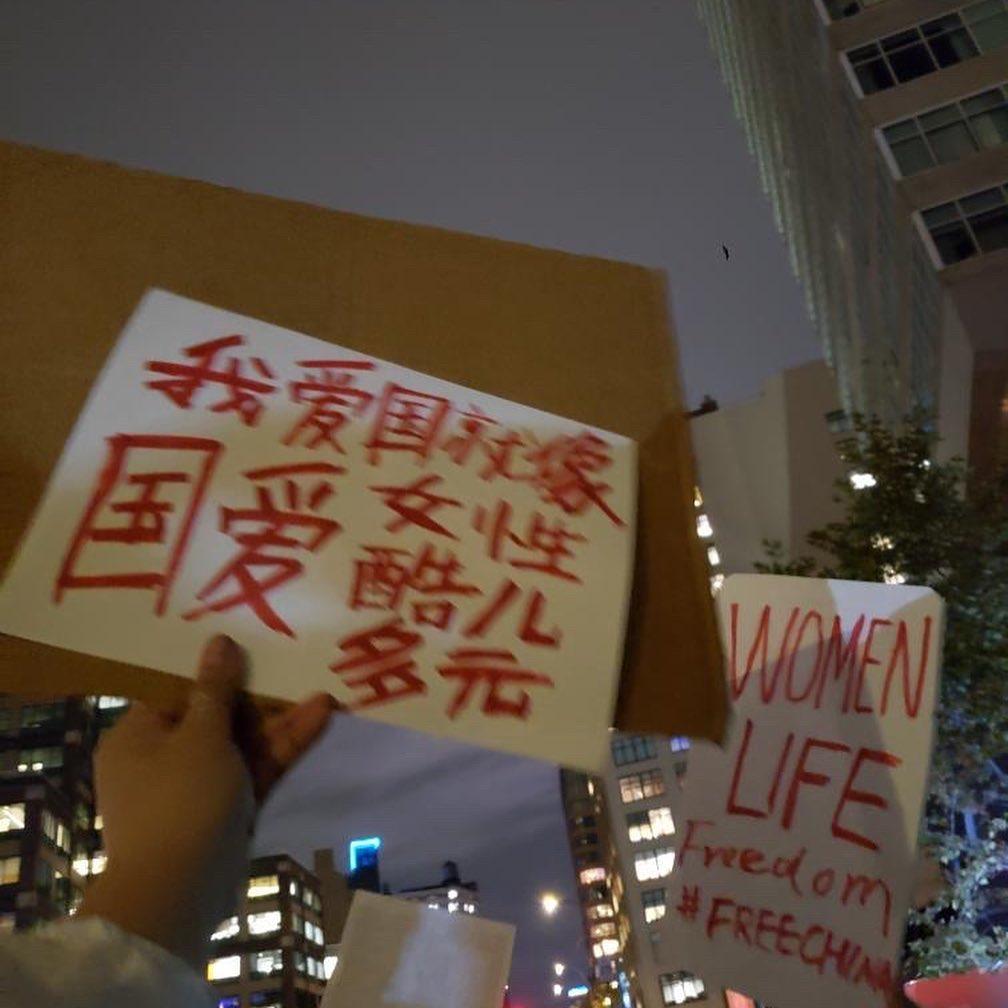 我爱国就像
国爱女性
酷儿
多元
WOMEN
LIFE
Freedom
#FREECHINA